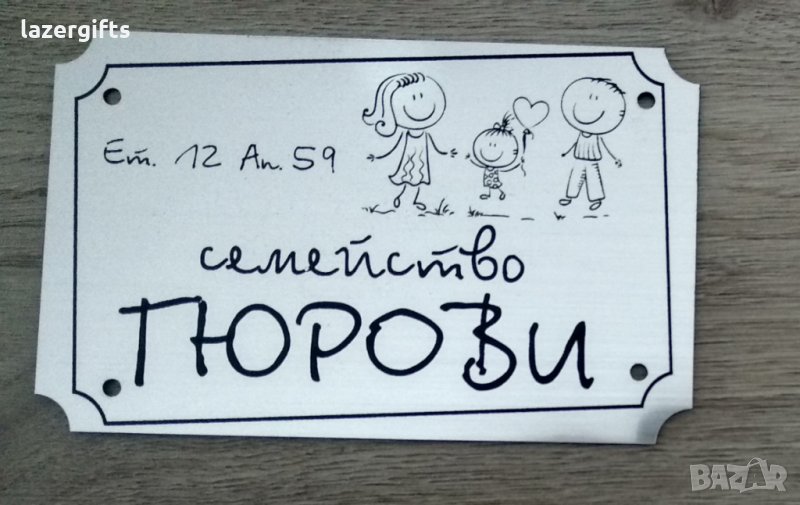 lazergifts
Ет. 12 Ап. 59
семейство
ГЮРОВИ
BAZAR